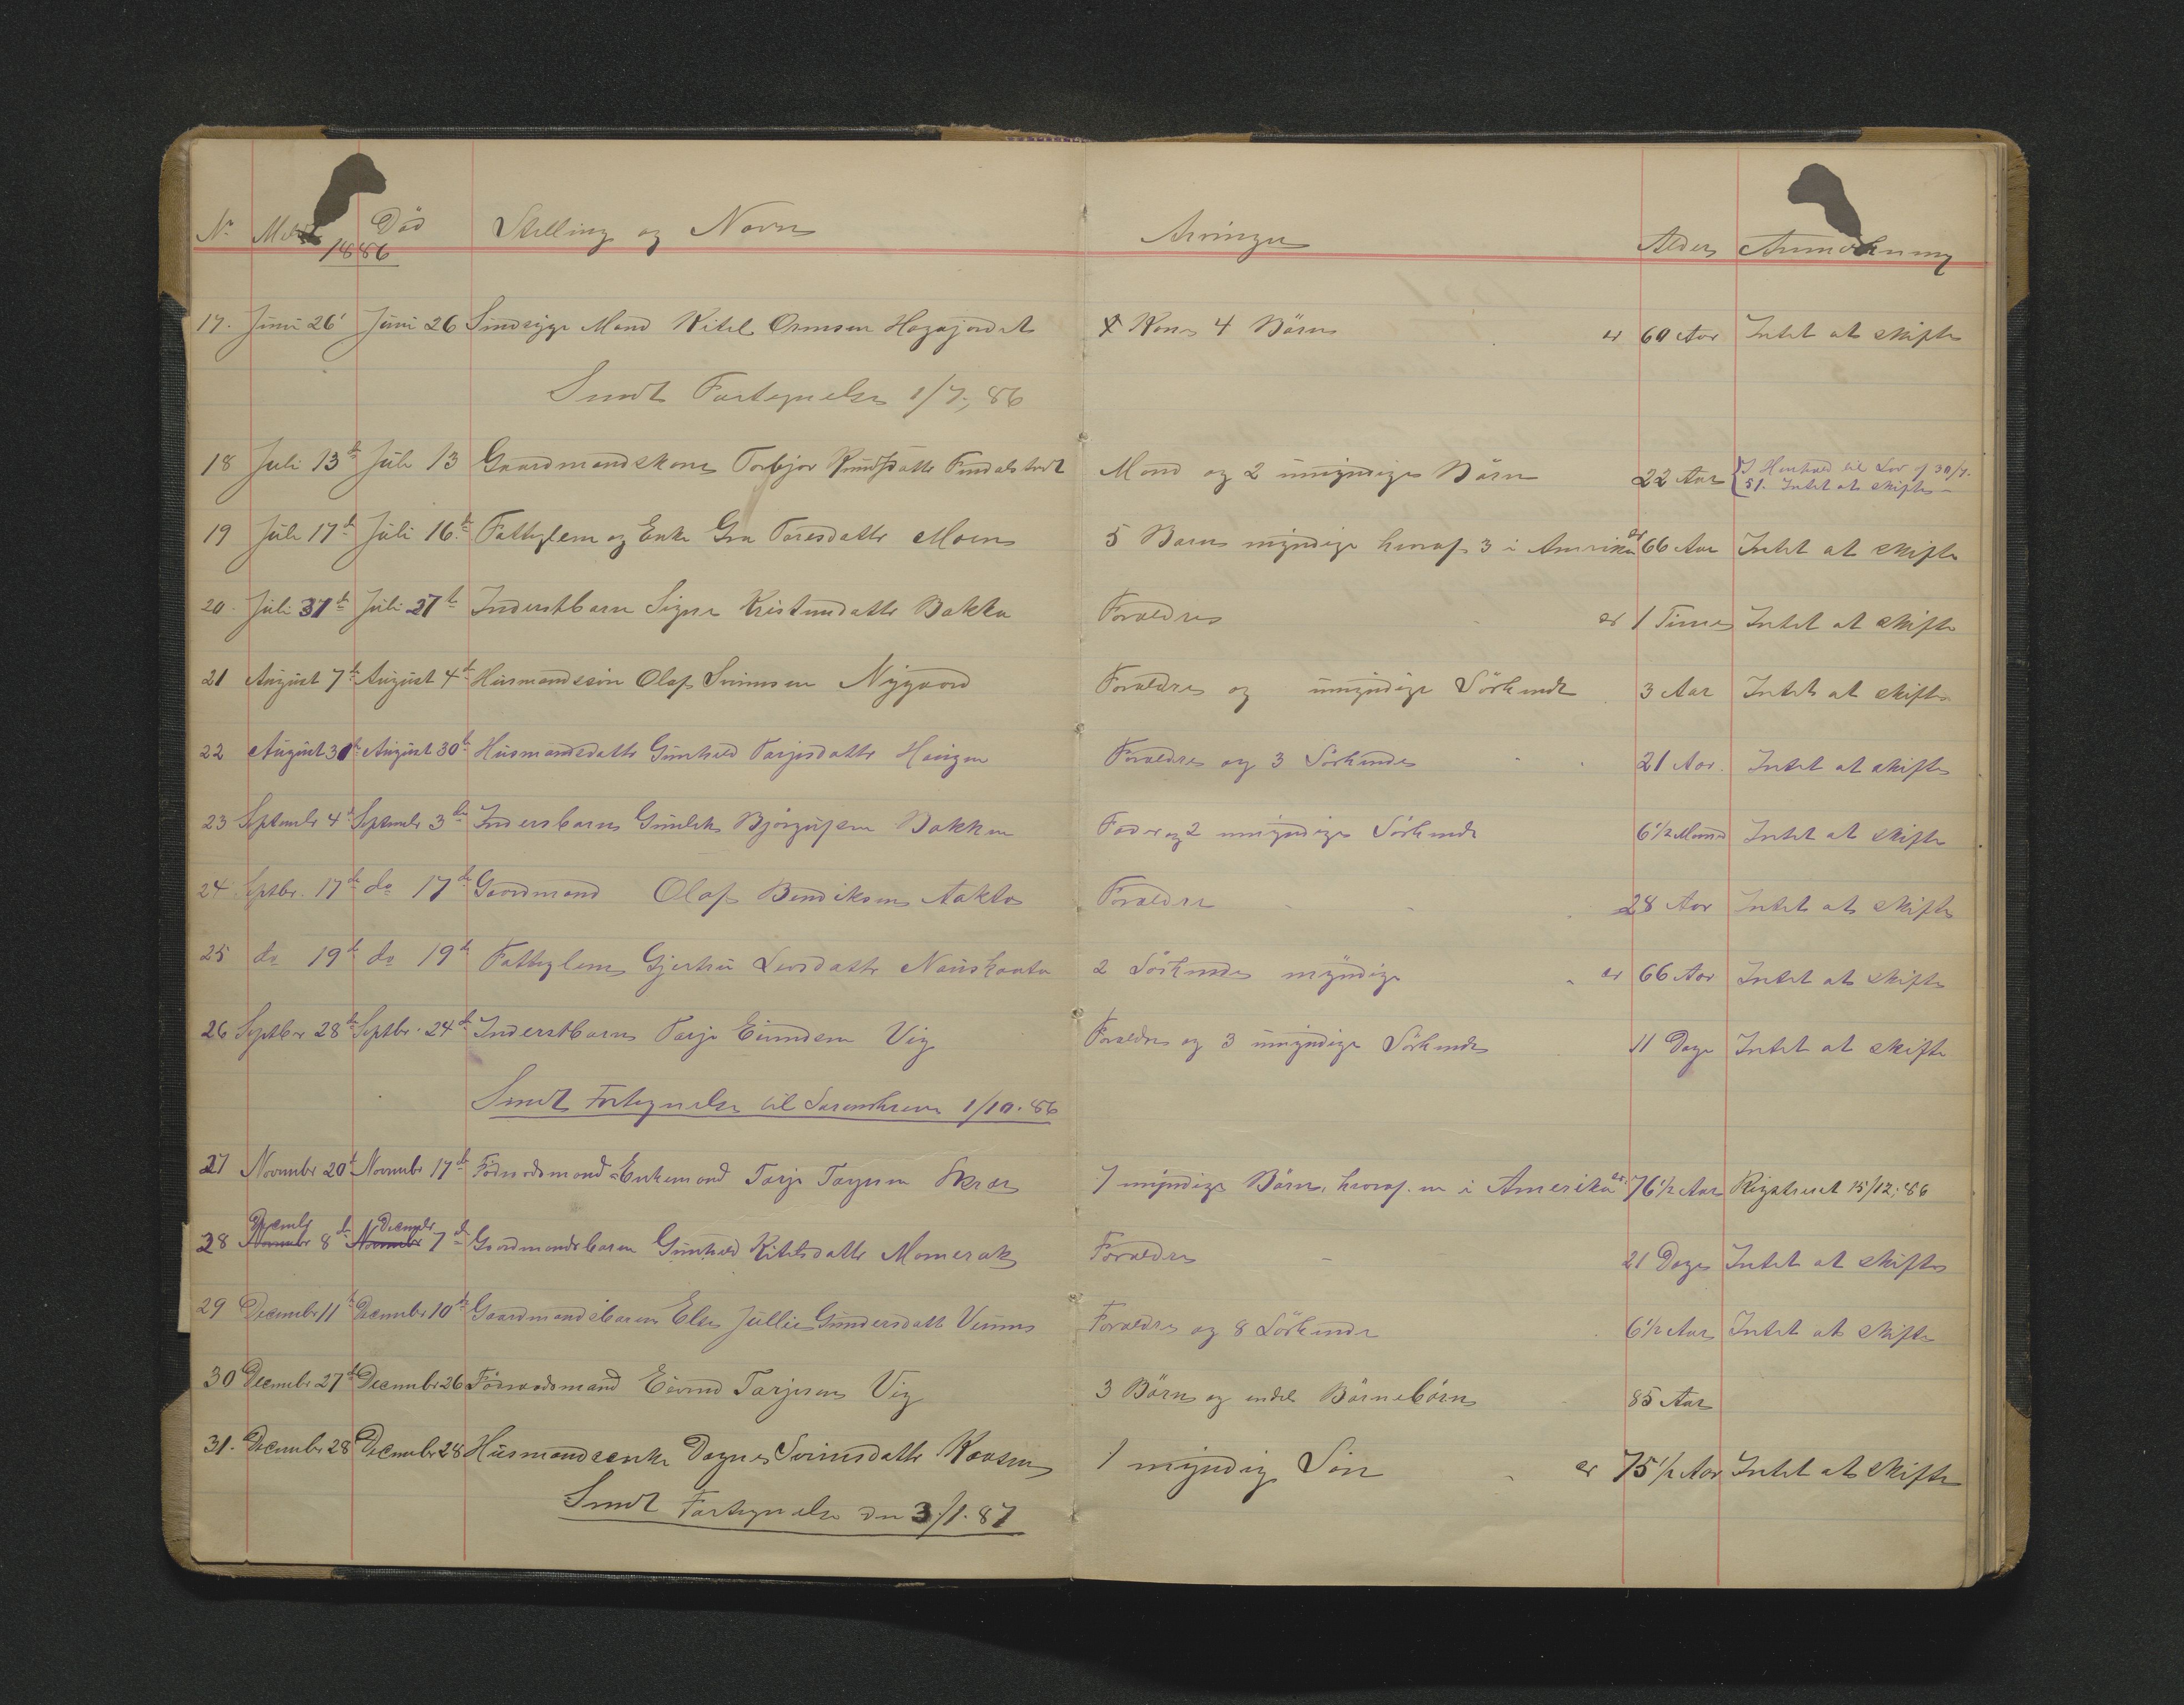 Nr Død Stilling og Navn Arvinger Alder Anmerkning
1886
17. Juni 26' Juni 26 Sindsyge Mand Kitel Ormsen Hagajordet Kone 4 Börn er 60 Aar Intet at skifte
Sendt Fortegnelse 1/7, 86
18 Juli 13de Juli 13 Gaardmandskone Torbjør Knudsdatter Mand og 2 umyndige Börn 22 Aar I Henhold til Lov af 30/7.
51. Intet at skifte
19 Juli 17de Juli 16de Fattiglem og Enke Gro Taresdatter Moen 5 Barn myndige hvoraf 3 i Amerika er 66 Aar Intet at skifte
20. Juli 31te Juli 27de Inderstbarn Signe Kristendatter Bakka Forældre er 1 Time Intet at skifte
21 August 7de August 4de Husmandssön Olaf Sveinsen Nygaard Forældre og umyndige Sörkende 3 Aar Intet at skifte
22 August 30te August 30te Husmandsdatter Gunhild Tarjesdatter Haugen Forældre og 3 Sörkende 21 Aar. Intet at skifte
23 Septembr 4de Septembr 3die Indersbarn Gunleik Björgufsen Bakken Fader og 2 umyndige Sörkende 6 1/2 Maaned Intet at skifte
24 Septbr. 17de do 17de Gaardmand Olaf Bendiksen Aakto Forældre 28 Aar Intet at skifte
25 do 19de do 19de Fattiglem Gjertru Leosdatter Nauskaata 2 Sörkende myndige er 66 Aar Intet at skifte
26 Septbr 28de Septbr. 24de Inderstbarn Tarje Eivindsen Vig Forældre og 3 umyndige Sörkende 11 Dage Intet at skifte
Sendt Fortegnelse til Sorenskriver 1/10. 86
27 Novembr 20de Novembr 17de Föderaadsmand Enkemand Tarje Skræe 7 myndige Börn, hvoraf en i Amerika er 76 1/2 Aar Registreret 15/12; 86
Decembr Decembr
28 Novembr 8de Novembr 7de Gaardmandsbarn Gunhild Kitelsdatter Momerak Forældre 21 Dage Intet at skifte
29 Decembr 11te Decembr 10de Gaardmandsbarn Else Jullie Gundersdatt Veums Forældre og 8 Sörkende 6 1/2 Aar Intet at skifte
30 Decembr 27de Decembr 26 Föderaadsmand Eivind Tarjesen Vig 3 Börn og endel Börnebörn 85 Aar
31. Decembr 28 Decembr 28 Husmandsenke Dagne Sveinsdatter Kaasen 1 myndig Sön er 75 1/2 Aar Intet at skifte
Sendt Fortegnelse den 3/1. 87